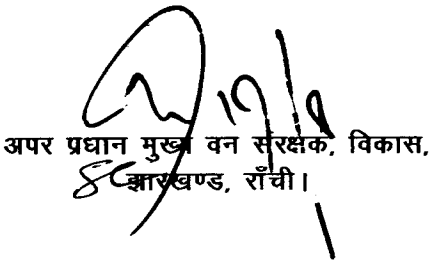 अपर प्रधान मुख्य वन संरक्षक, विकास,
झारखण्ड, राँची।